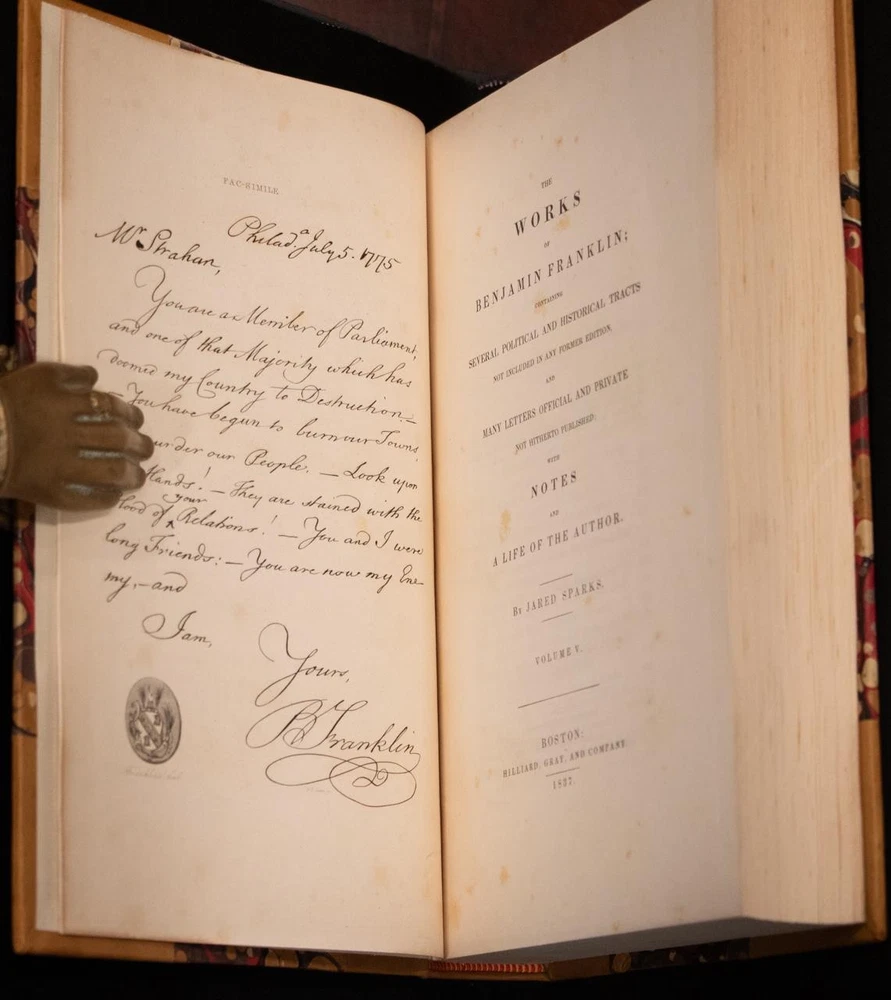 FAC-SIMILE
Philad.ª July 5. 1775
Mr Strahan,
You are a Member of Parliament,
and one of that Majority which has
doomed my Country to Destruction.—
— You have begun to burn our Towns,
urder our People. — Look upon
Hands! — They are stained with the
lood of your Relations! — You and I were
long Friends: — You are now my Ene-
my, — and
I am,
Yours,
B Franklin
THE
WORKS
OF
BENJAMIN FRANKLIN;
CONTAINING
SEVERAL POLITICAL AND HISTORICAL TRACTS
NOT INCLUDED IN ANY FORMER EDITION,
AND
MANY LETTERS OFFICIAL AND PRIVATE
NOT HITHERTO PUBLISHED;
WITH
NOTES
AND
A LIFE OF THE AUTHOR.
BY JARED SPARKS.
VOLUME V.
BOSTON:
HILLIARD, GRAY, AND COMPANY.
1837.